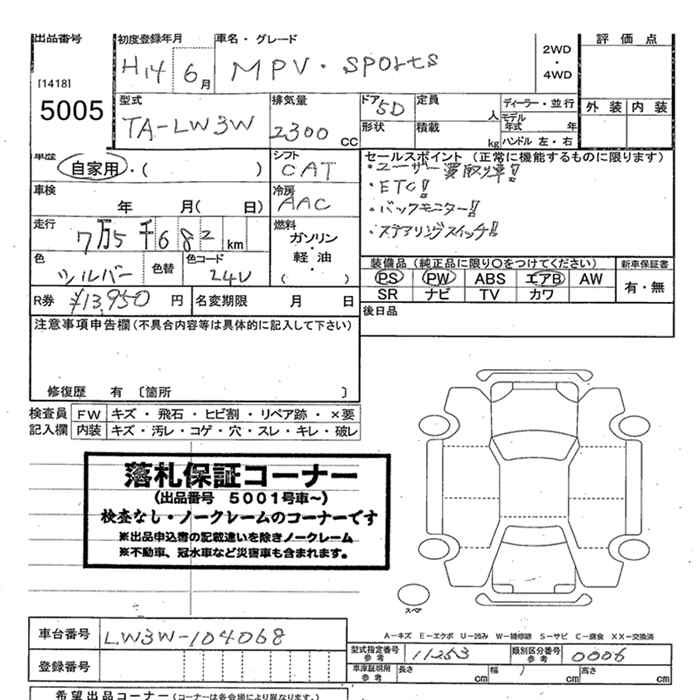 出品番号 初度登録年月 車名・グレード 2WD・4WD 評価点
[1418] 5005 H14 6月 MPV・SPORTS 外装 内装
型式 排気量 ドア 5D 定員 人 ディーラー・並行
TA-LW3W 2300 CC 形状 積載 kg モデル年式 年
ハンドル 左・右
車歴 自家用・( ) シフト CAT セールスポイント (正常に機能するものに限ります)
・ユーザー買取車!!
車検 年 月( 日) 冷房 AAC ・ETC!!
・バックモニター!!
走行 7万5千682km 燃料 ガソリン・軽油・( ) ・ステアリングスイッチ!!
色 シルバー 色替 色コード 24V 装備品 (純正品に限り○をつけてください) 新車保証書
PS PW ABS エアB AW 有・無
R券 ¥13,950 円 名変期限 月 日 SR ナビ TV カワ
注意事項申告欄 (不具合内容等は具体的に記入して下さい) 後日品
修復歴 有 〔箇所 〕
検査員 FW キズ・飛石・ヒビ割・リペア跡・×要
記入欄 内装 キズ・汚レ・コゲ・穴・スレ・キレ・破レ
落札保証コーナー
(出品番号 5001号車~)
検査なし・ノークレームのコーナーです
※出品申込書の記載違いを除きノークレーム
※不動車、冠水車など災害車も含まれます。
スペア
A-キズ E-エクボ U-凹み W-補修跡 S-サビ C-腐食 XX-交換済
車台番号 LW3W-104068 型式指定番号 参考 11253 類別区分番号 参考 0006
登録番号 車庫証明用 参考 長さ cm 幅 cm 高さ cm
希望出品コーナー (コーナーは各会場により異なります。)